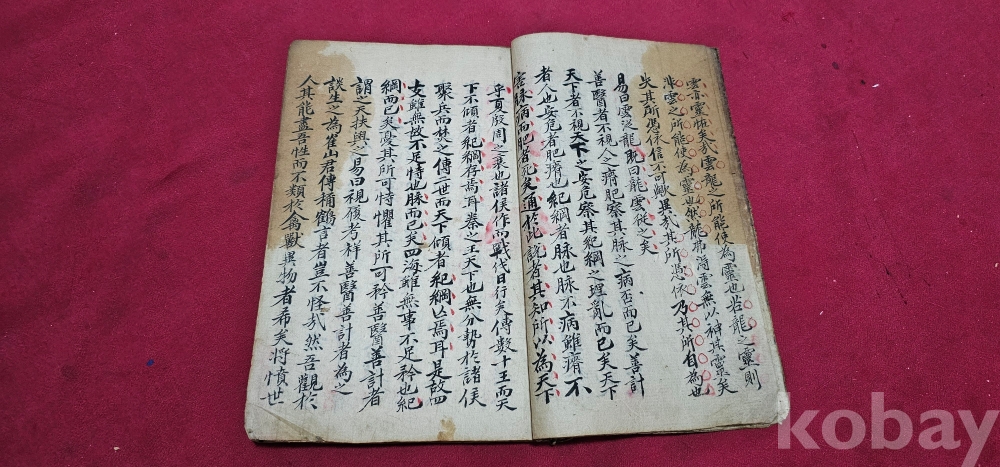 雲亦靈怪矣哉雲龍之所能使為靈也若龍之靈則
非雲之所能使為靈也然龍弗得雲無以神其靈矣
失其所憑依信不可歟異哉其所憑依乃其所自為也
易曰雲從龍既曰龍雲從之矣
善醫者不視人之瘠肥察其脉之病否而已矣善計
天下者不視天下之安危察其紀綱之理亂而已矣天下
者人也安危者肥瘠也紀綱者脉也脉不病雖瘠不
害脉病而肥者死矣通於此說者其知所以為天下
乎夏殷周之衰也諸侯作而戰伐日行矣傳數十王而天
下不傾者紀綱存焉耳秦之王天下也無分勢於諸侯
聚兵而焚之傳二世而天下傾者紀綱亡焉耳是故四
支雖無故不足恃也脉而已矣四海雖無事不足矜也紀
綱而已矣憂其所可恃懼其所可矜善醫善計者
謂之天扶與之易曰視履考祥善醫善計者為之
談生之為崔山君傳稱鶴言者豈不怪哉然吾觀於
人其能盡吾性而不類於禽獸異物者希矣將憤世
kobay